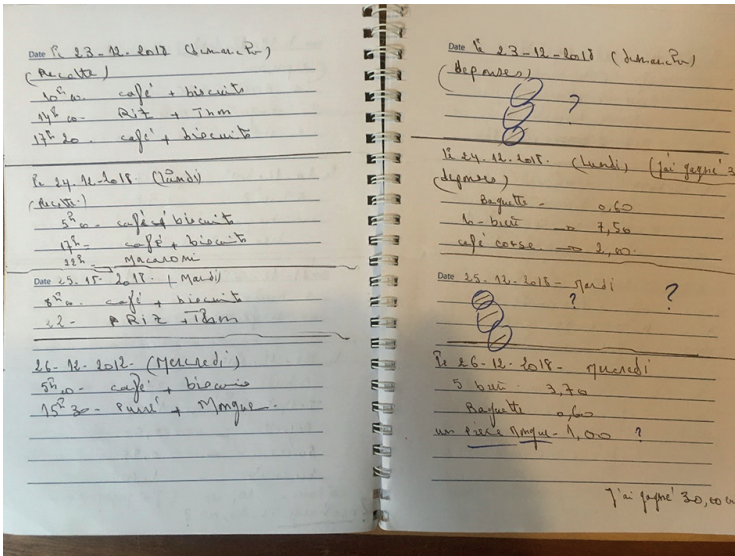 Date le 23-12-2018 (dimanche)
(Recette)
10h00 café + biscuits
14h00 Riz + Thon
17h20 café + biscuits
le 24-12-2018. (Lundi)
(Recette)
5h00 café + biscuits
17h - café + biscuits
22h - Macaroni
Date 25-15-2018. (Mardi)
8h00 café + biscuits
22 - Riz + Thon
26-12-2012- (Mercredi)
5h00 - café + biscuits
15h30 - Purré + Mongue.
Date le 23-12-2018 (dimanche)
(deponses)
?
le 24-12-2018. (Lundi) (j'ai gagné 3
(deponses)
Baguette - 0,60
10-bière → 7,50
café corse → 2,00.
Date 25-12-2018 - Mardi
? ?
le 26-12-2018 - Mercredi
5 3,70
Baguette 0,60
un piece Mongue - 1,00 ?
J'ai gagné 30,00